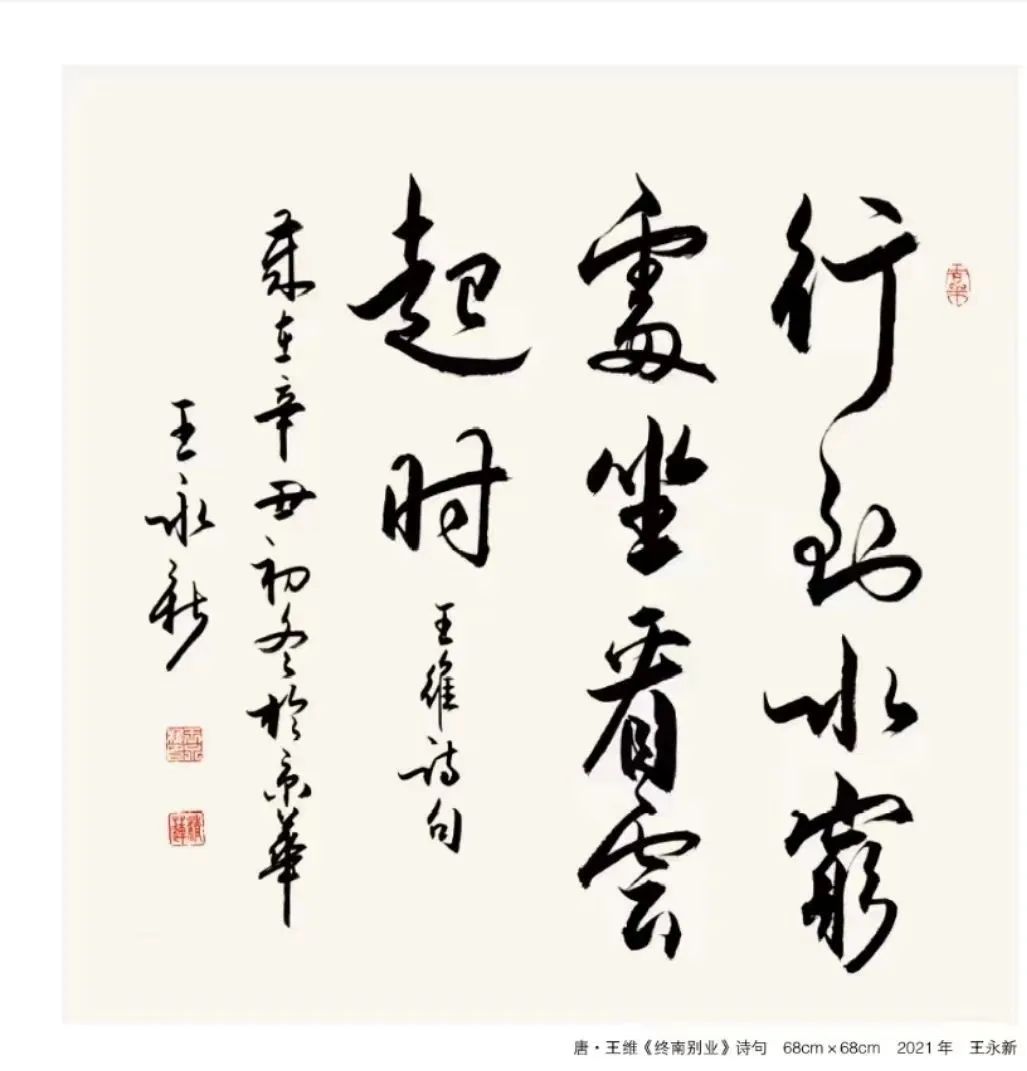 行到水窮
處坐看雲
起时
王維詩句
歲在辛丑初冬於京華
王永新
唐·王维《终南别业》诗句 68cm×68cm 2021年 王永新